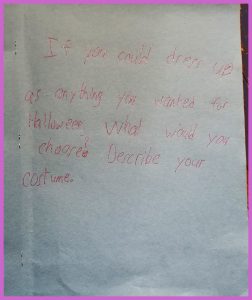 If you could dress up
as anything you wanted for
Halloween, What would you
choose? Describe your
costume.